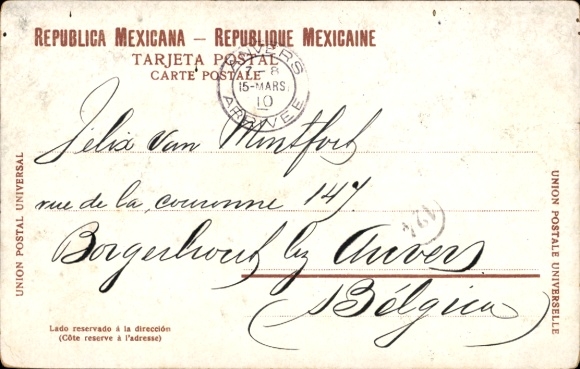 REPUBLICA MEXICANA — REPUBLIQUE MEXICAINE
TARJETA POSTAL
CARTE POSTALE
ANVERS
7-8
15-MARS
10
ARRIVEE
Félix van Montfort
rue de la couronne 147
Borgerhout bij Anvers
(Bélgica)
UNION POSTAL UNIVERSAL
UNION POSTALE UNIVERSELLE
Lado reservado á la dirección
(Côte reserve à l'adresse)